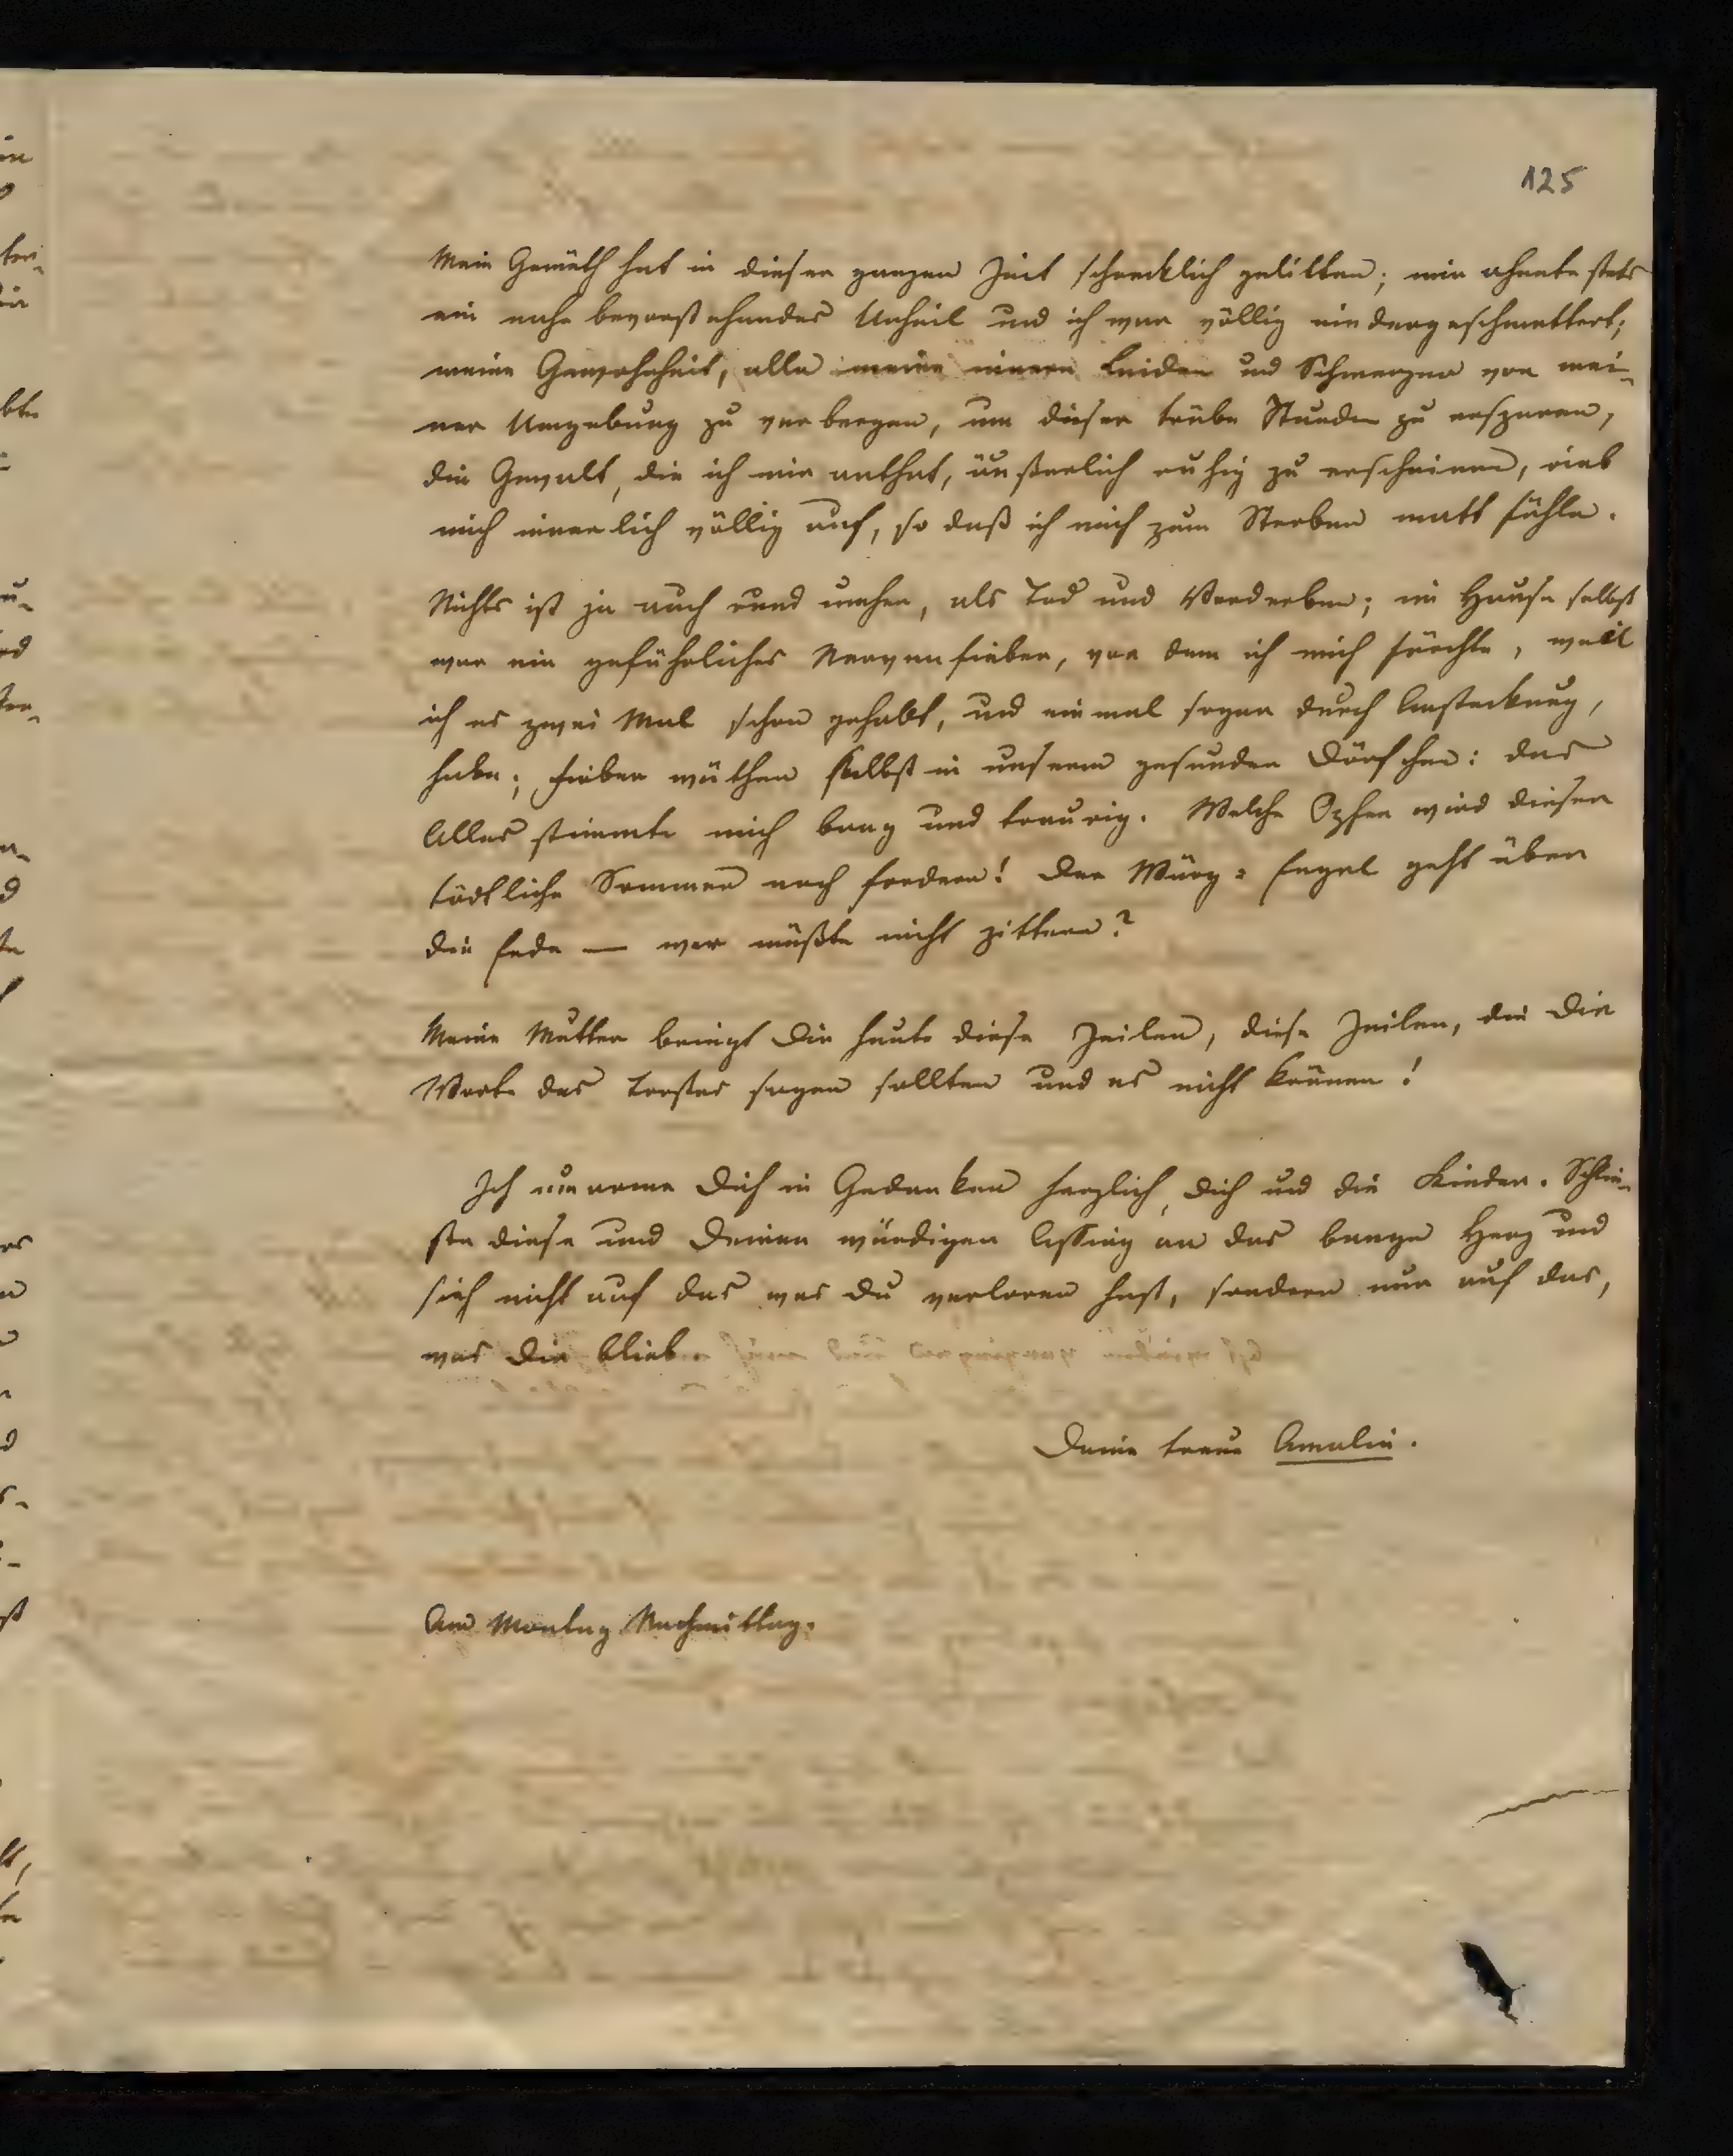 125
Mein Gemüth hat in dieser ganzen Zeit schrecklich gelitten; mir ahnete stets
ein nahe bevorstehendes Unheil und ich war völlig niedergeschmettert;
meine Gewohnheit, alle meine innern Leiden und Schmerzen vor mei-
ner Umgebung zu verbergen, um dieser trübe Stunden zu ersparen,
die Gewalt, die ich mir anthat, äußerlich ruhig zu erscheinen, rieb
mich innerlich völlig auf, so daß ich mich zum Sterben matt fühle.
Nichts ist ja auch rund umher, als Tod und Verderben; im Hause selbst
war ein gefährliches Nervenfieber, vor dem ich mich fürchte, weil
ich es zwei Mal schon gehabt, und einmal sogar durch Ansteckung,
habe; Fieber wüthen selbst in unserm gesunden Dörfchen: das
Alles stimmte mich bang und traurig. Welche Opfer wird dieser
tödtliche Sommer noch fordern! Der Würg-Engel geht über
die Erde — wer müßte nicht zittern?
Meine Mutter bringt Dir heute diese Zeilen, diese Zeilen, die Dir
Worte des Trostes sagen sollten und es nicht können!
Ich umarme Dich in Gedanken herzlich, Dich und die Kinder. Schlie-
ße diese und Deinen würdigen Lessing an das bange Herz und
sieh nicht auf das was Du verloren hast, sondern nur auf das,
was Dir blieb.
Deine treue Amalie.
Am Montag Nachmittag.